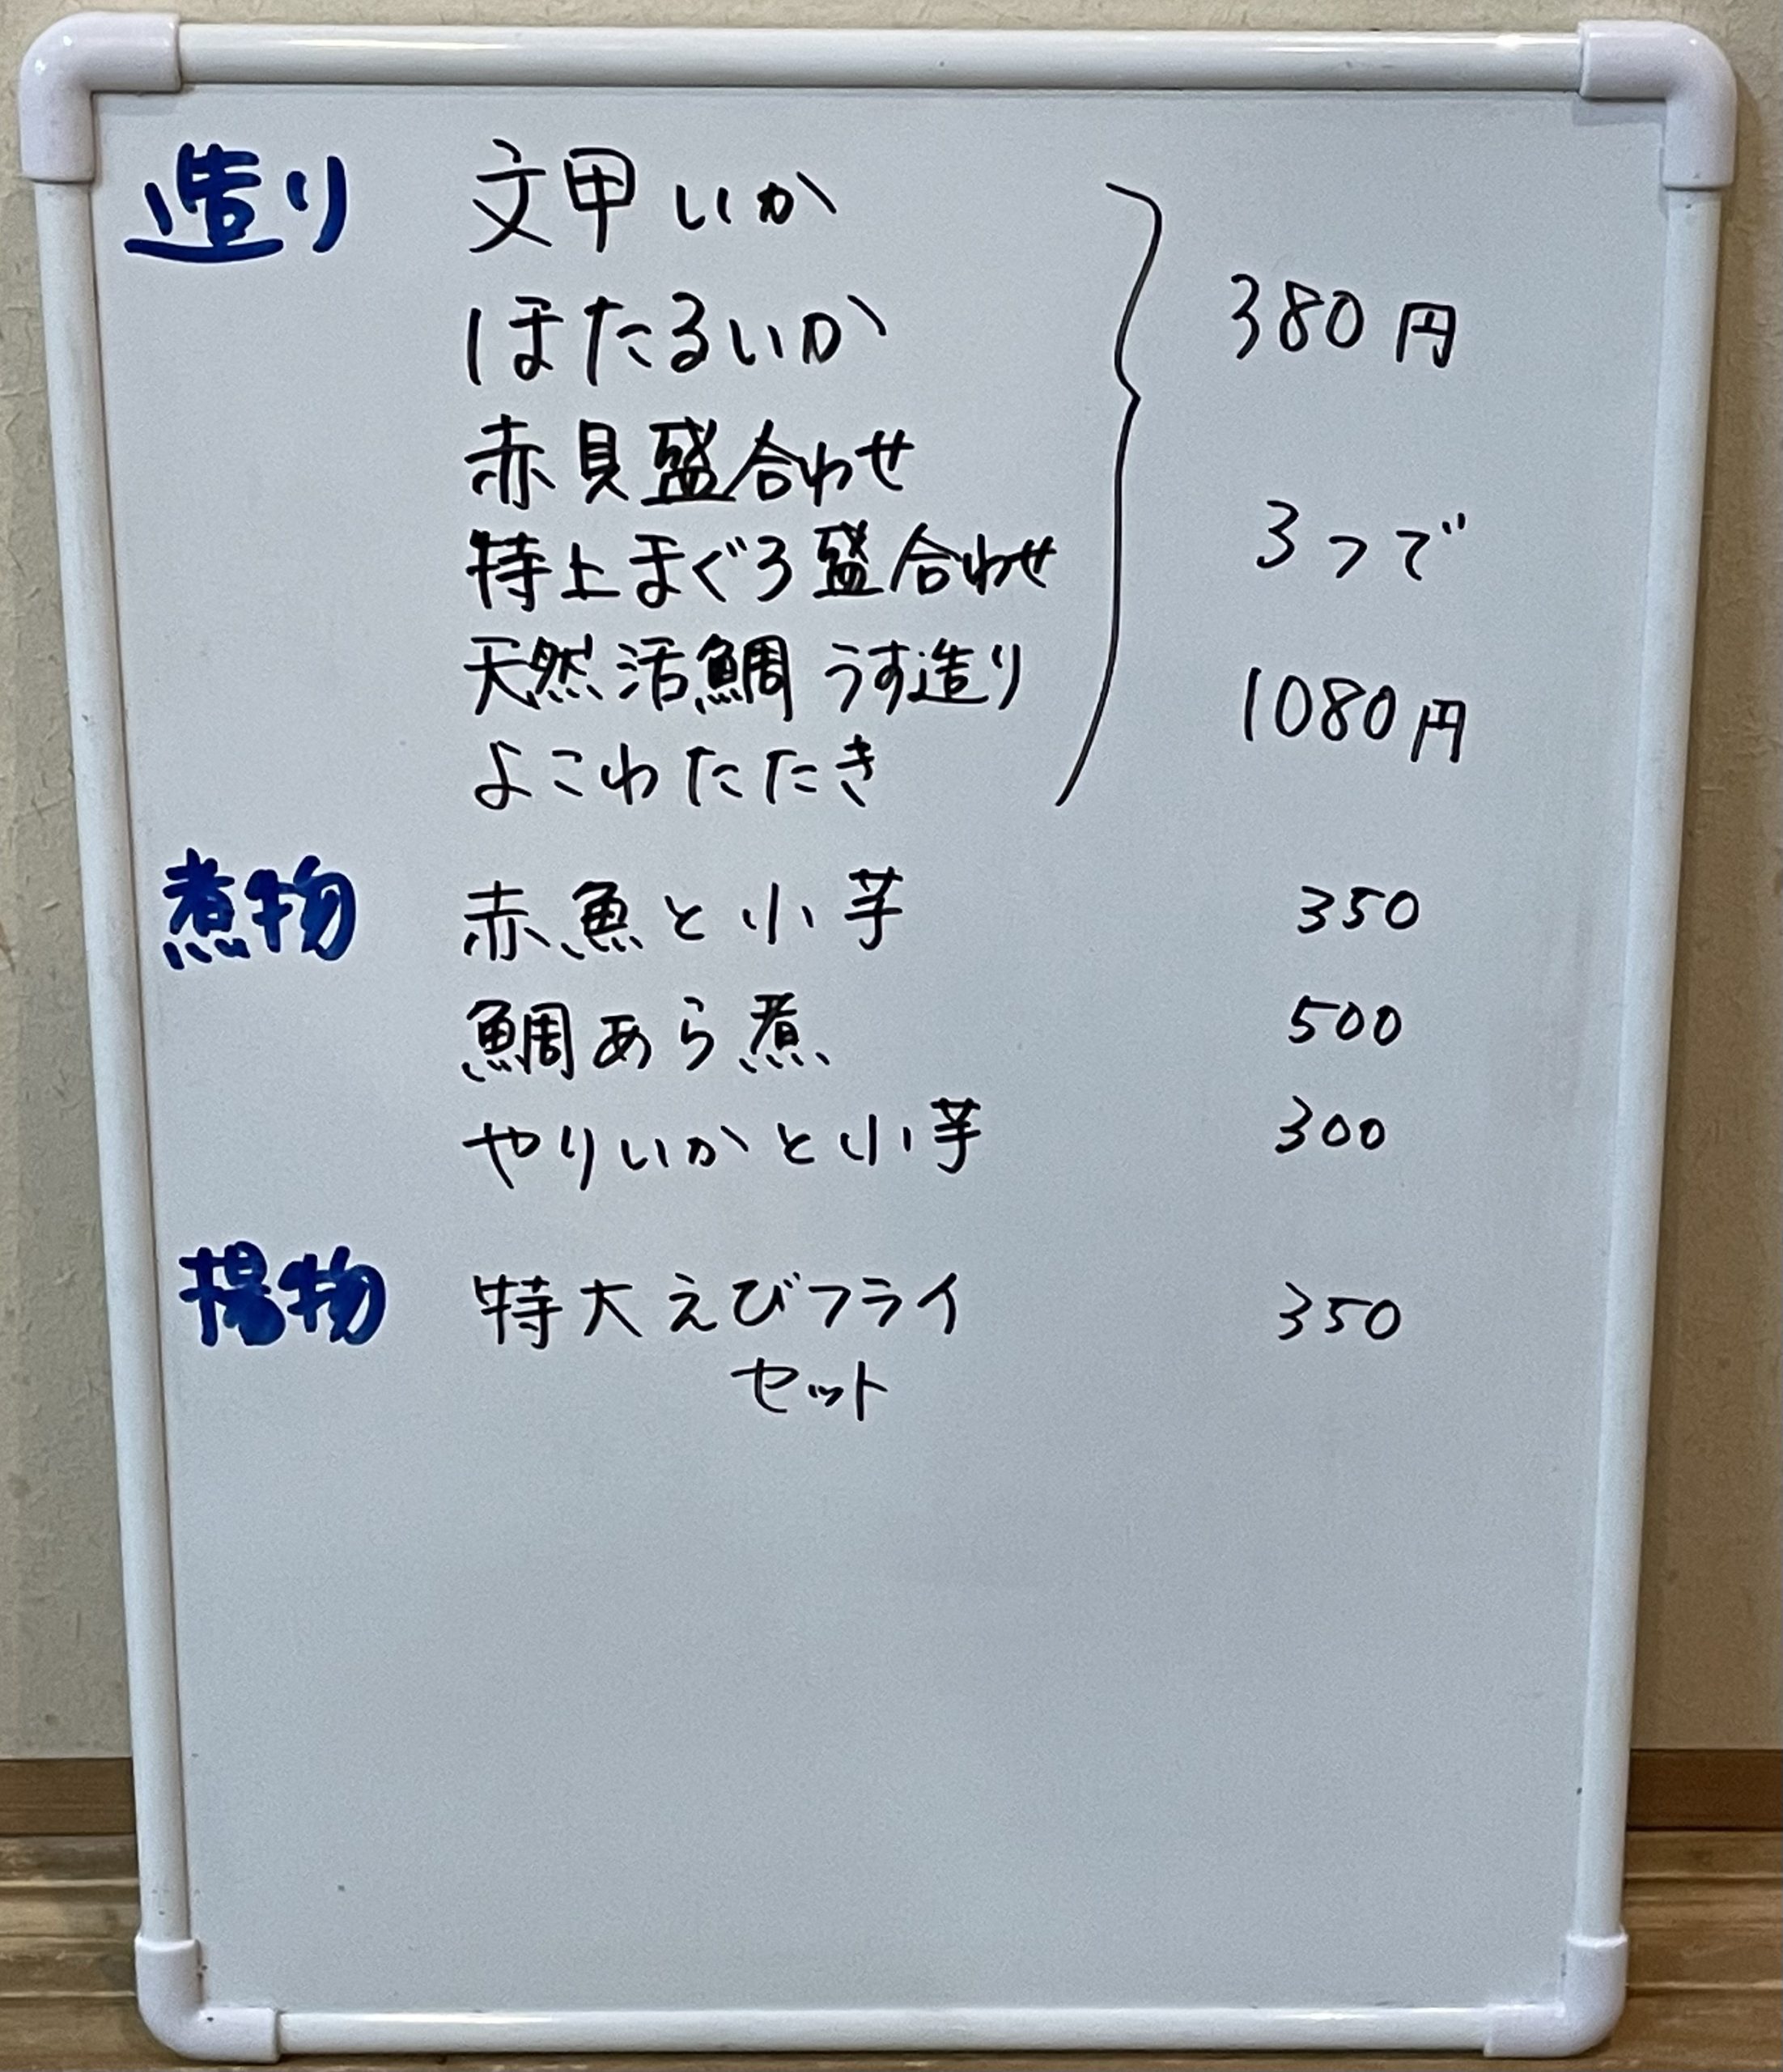 造り 文甲いか
ほたるいか 380円
赤貝盛合わせ
特上まぐろ盛合わせ 3つで
天然活鯛 うす造り 1080円
よこわたたき
煮物 赤魚と小芋 350
鯛あら煮 500
やりいかと小芋 300
揚物 特大えびフライ 350
セット